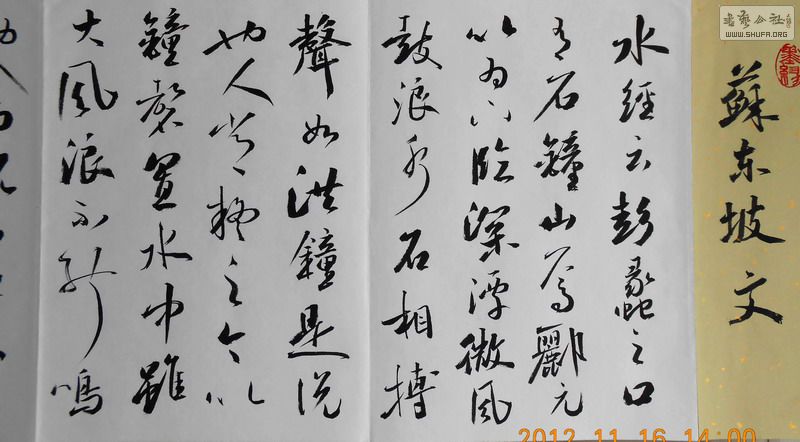 書藝公社
WWW.SHUFA.ORG
蘇東坡文
水經云彭蠡之口
有石鐘山焉酈元
以為下臨深潭微風
鼓浪水石相搏
聲如洪鐘是說
也人常疑之今以
鐘磬置水中雖
大風浪不能鳴
2012.11.16 14:00